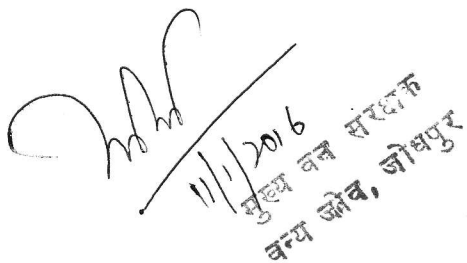 11/1/2016
मुख्य वन संरक्षक
वन्य जीव, जोधपुर